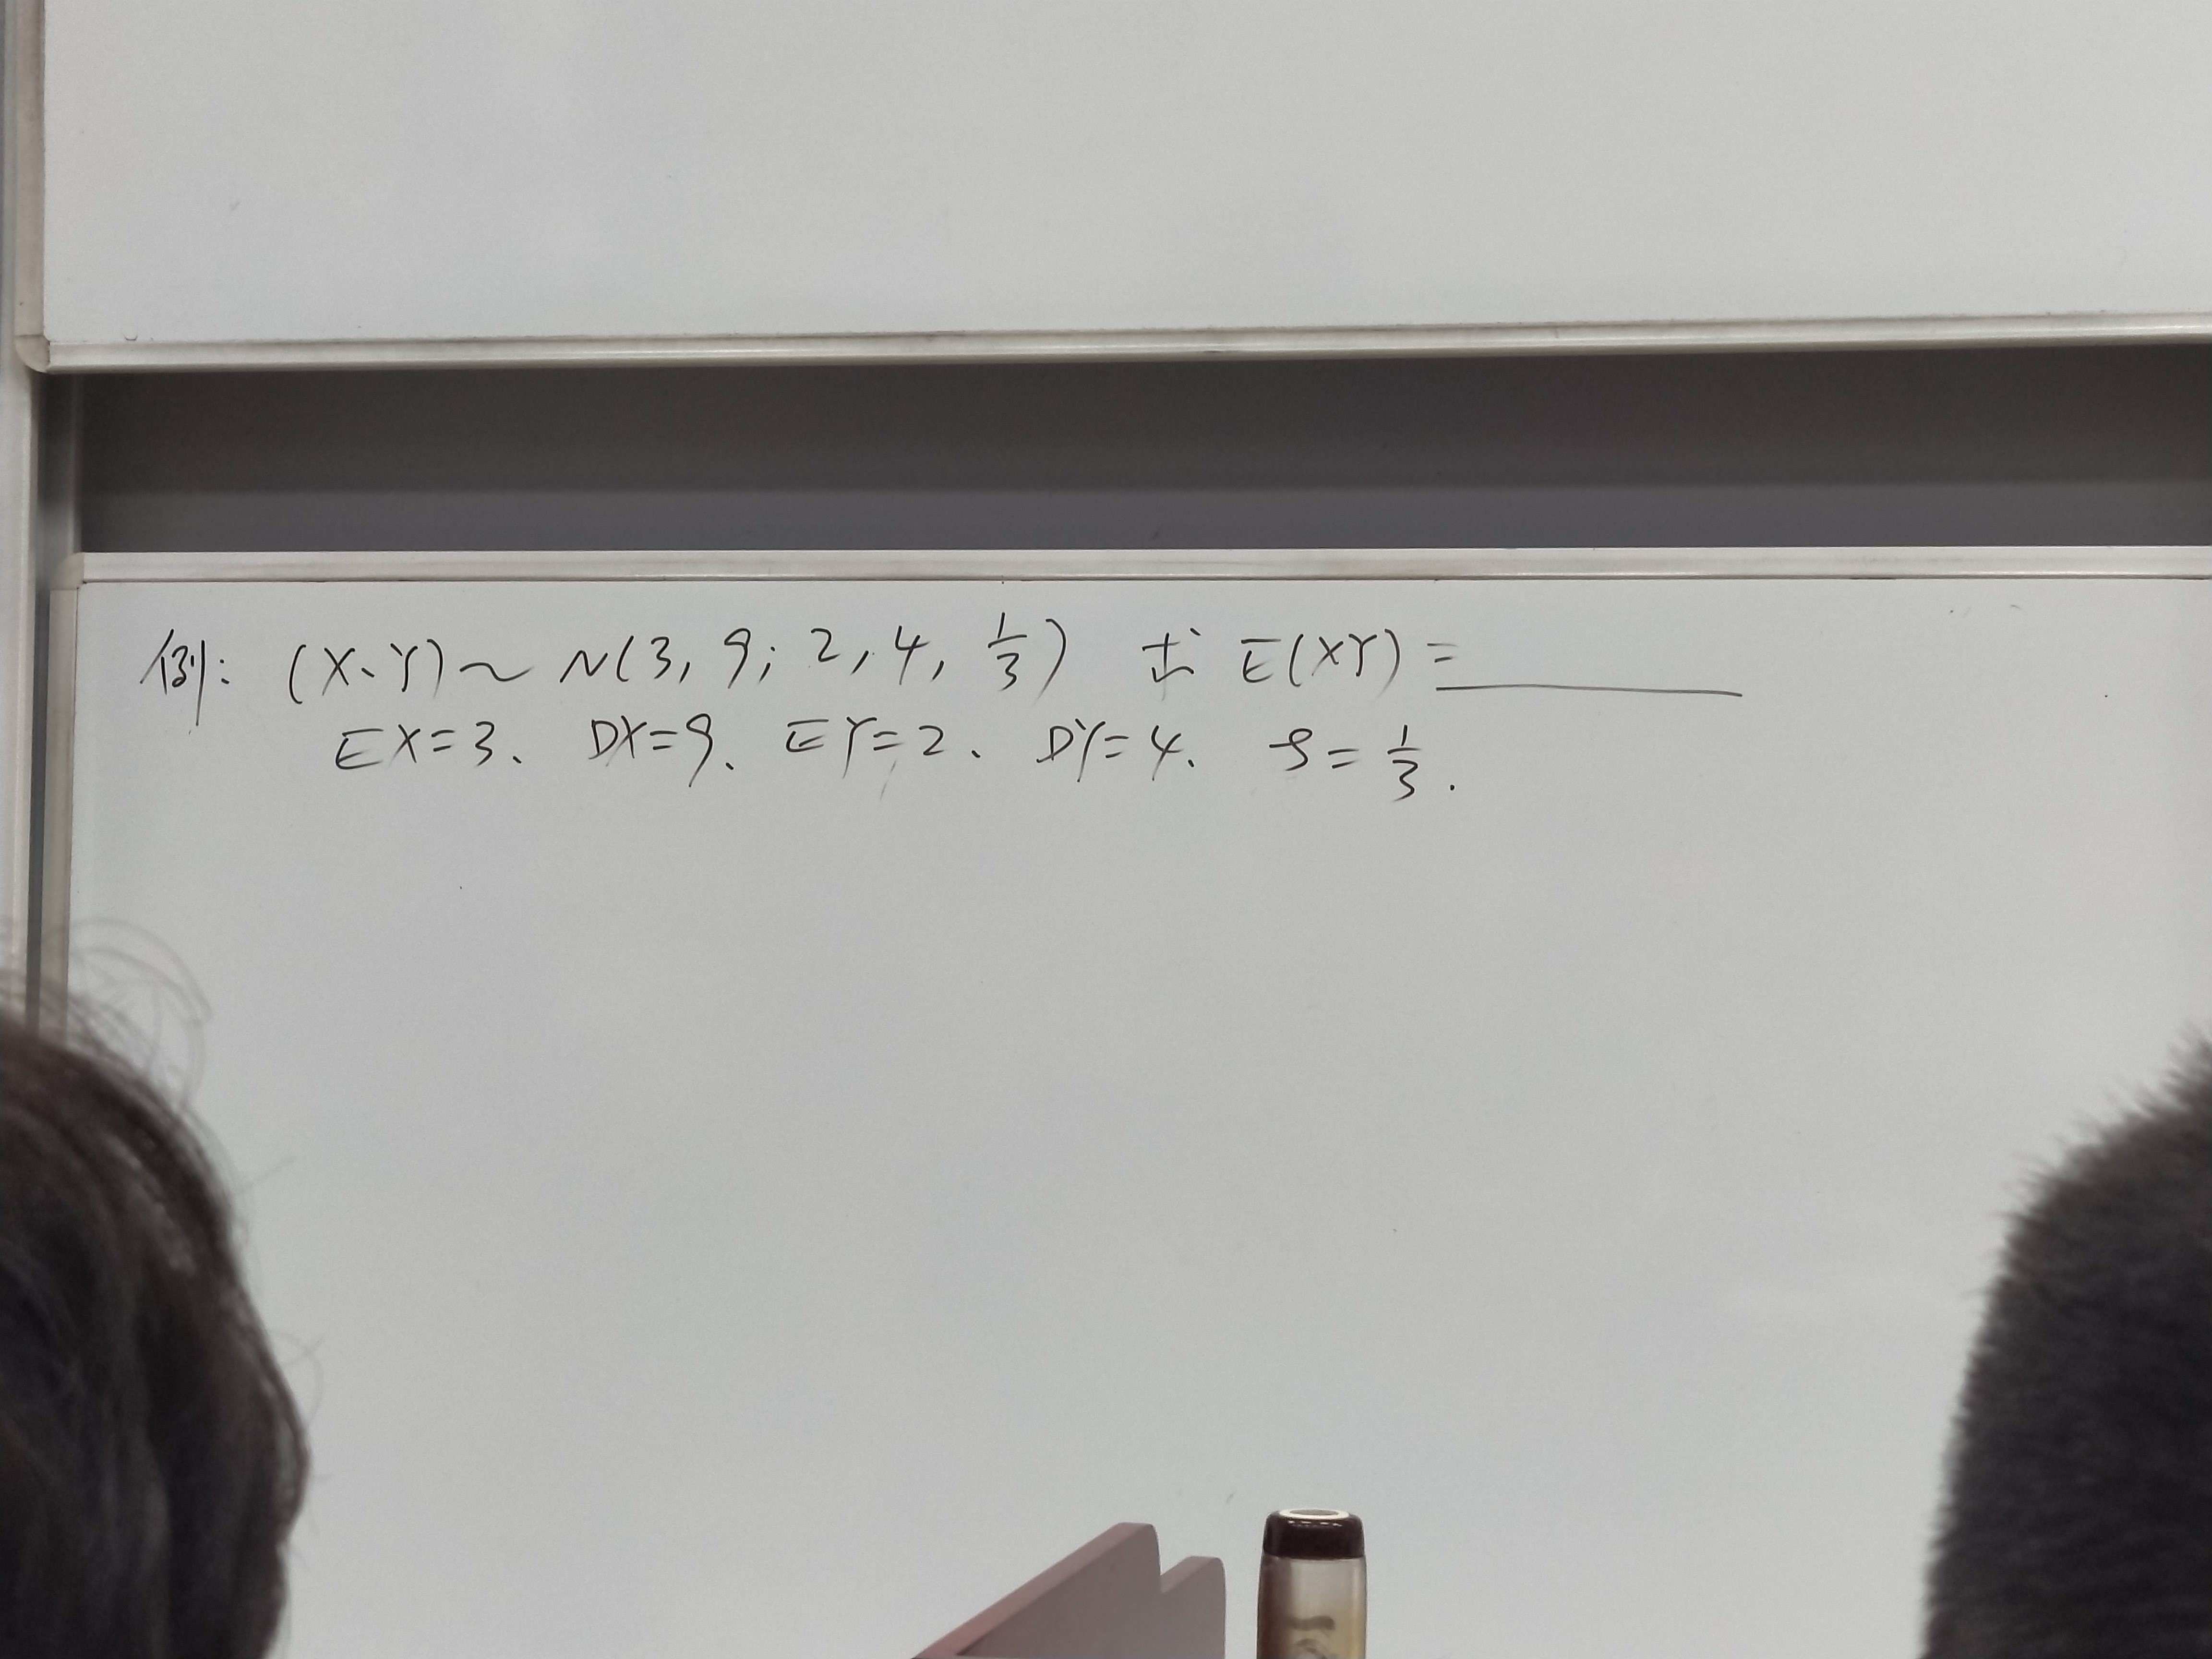 例: (X、Y) ~ N(3, 9; 2, 4, 1/3) 求 E(XY) = ______
EX=3、 DX=9、 EY=2、 DY=4、 ρ = 1/3.